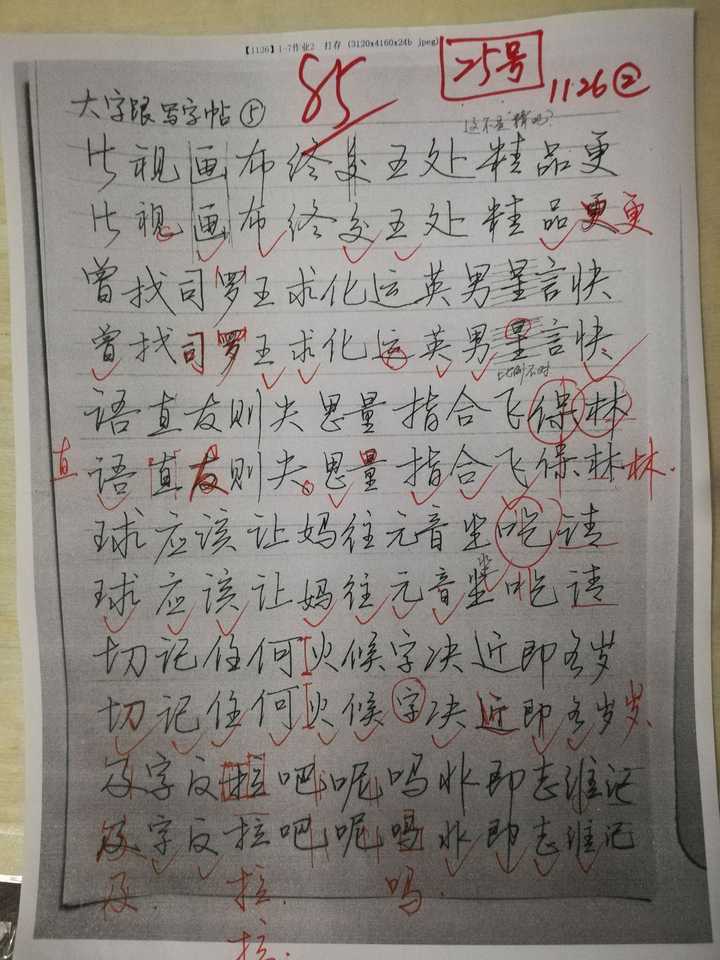 【1126】1-7作业2 打存 (3120x4160x24b jpeg)
85 25号
11·26 ②
大字跟写字帖⑤
比视画布终交五处精品更
比视画布终交五处精品更更
曾找司罗王求化运英男星言快
曾找司罗王求化运英男星言快
比例不对
语直友则失思量指合飞保林
直 语直友则失思量指合飞保林林
球应该让妈往元音坐吃请
球应该让妈往元音坐吃请
坐
切记住何火候字决近即各岁
切记住何火候字决近即各岁岁
及字反拉吧呢吗非即志谁记
及字反拉吧呢吗非即志谁记
及 拉 吗
拉